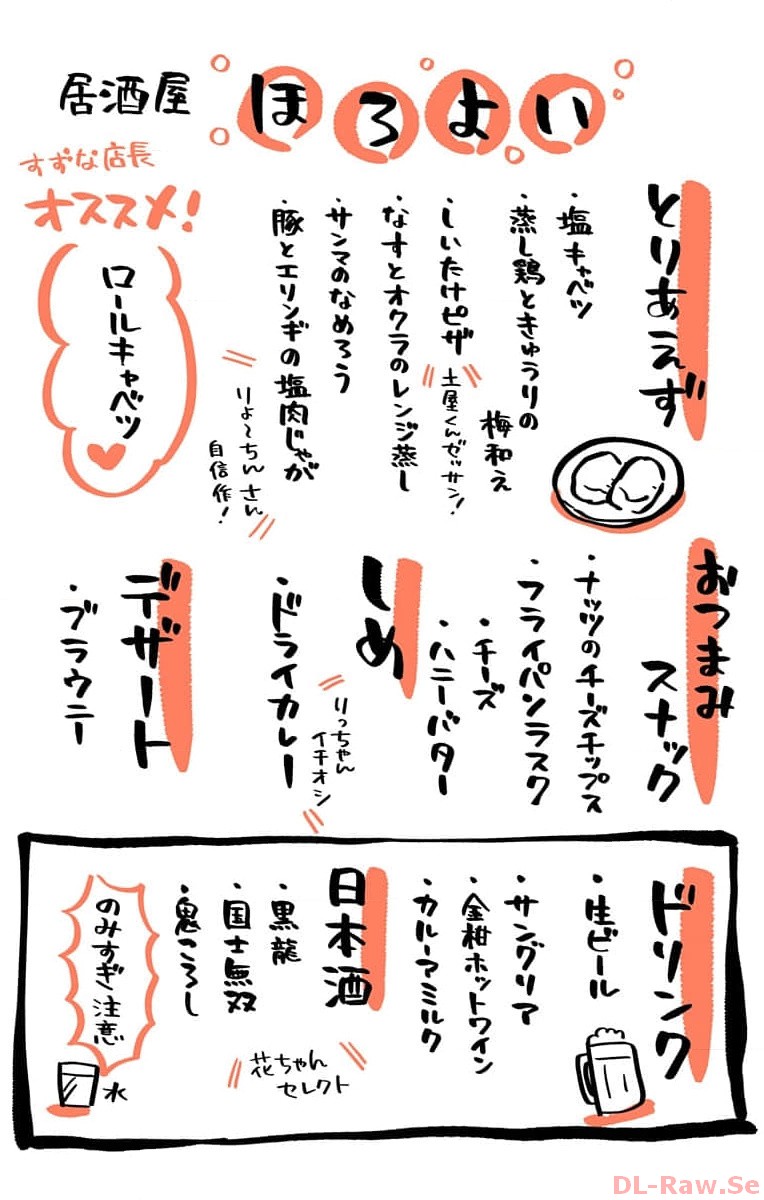 居酒屋 ほろよい
すずな店長
オススメ!
ロールキャベツ
とりあえず
・塩キャベツ
・蒸し鶏ときゅうりの
梅和え
・しいたけピザ
土屋くんゼッサン!
・なすとオクラのレンジ蒸し
・サンマのなめろう
・豚とエリンギの塩肉じゃが
りょーちんさん
自信作!
おつまみ
スナック
・ナッツのチーズチップス
・フライパンラスク
・チーズ
・ハニーバター
しめ
・ドライカレー
りっちゃん
イチオシ
デザート
・ブラウニー
ドリンク
・生ビール
・サングリア
・金柑ホットワイン
・カルーアミルク
日本酒
・黒龍
・国士無双
・鬼ころし
花ちゃん
セレクト
のみすぎ注意
水
DL-Raw.Se